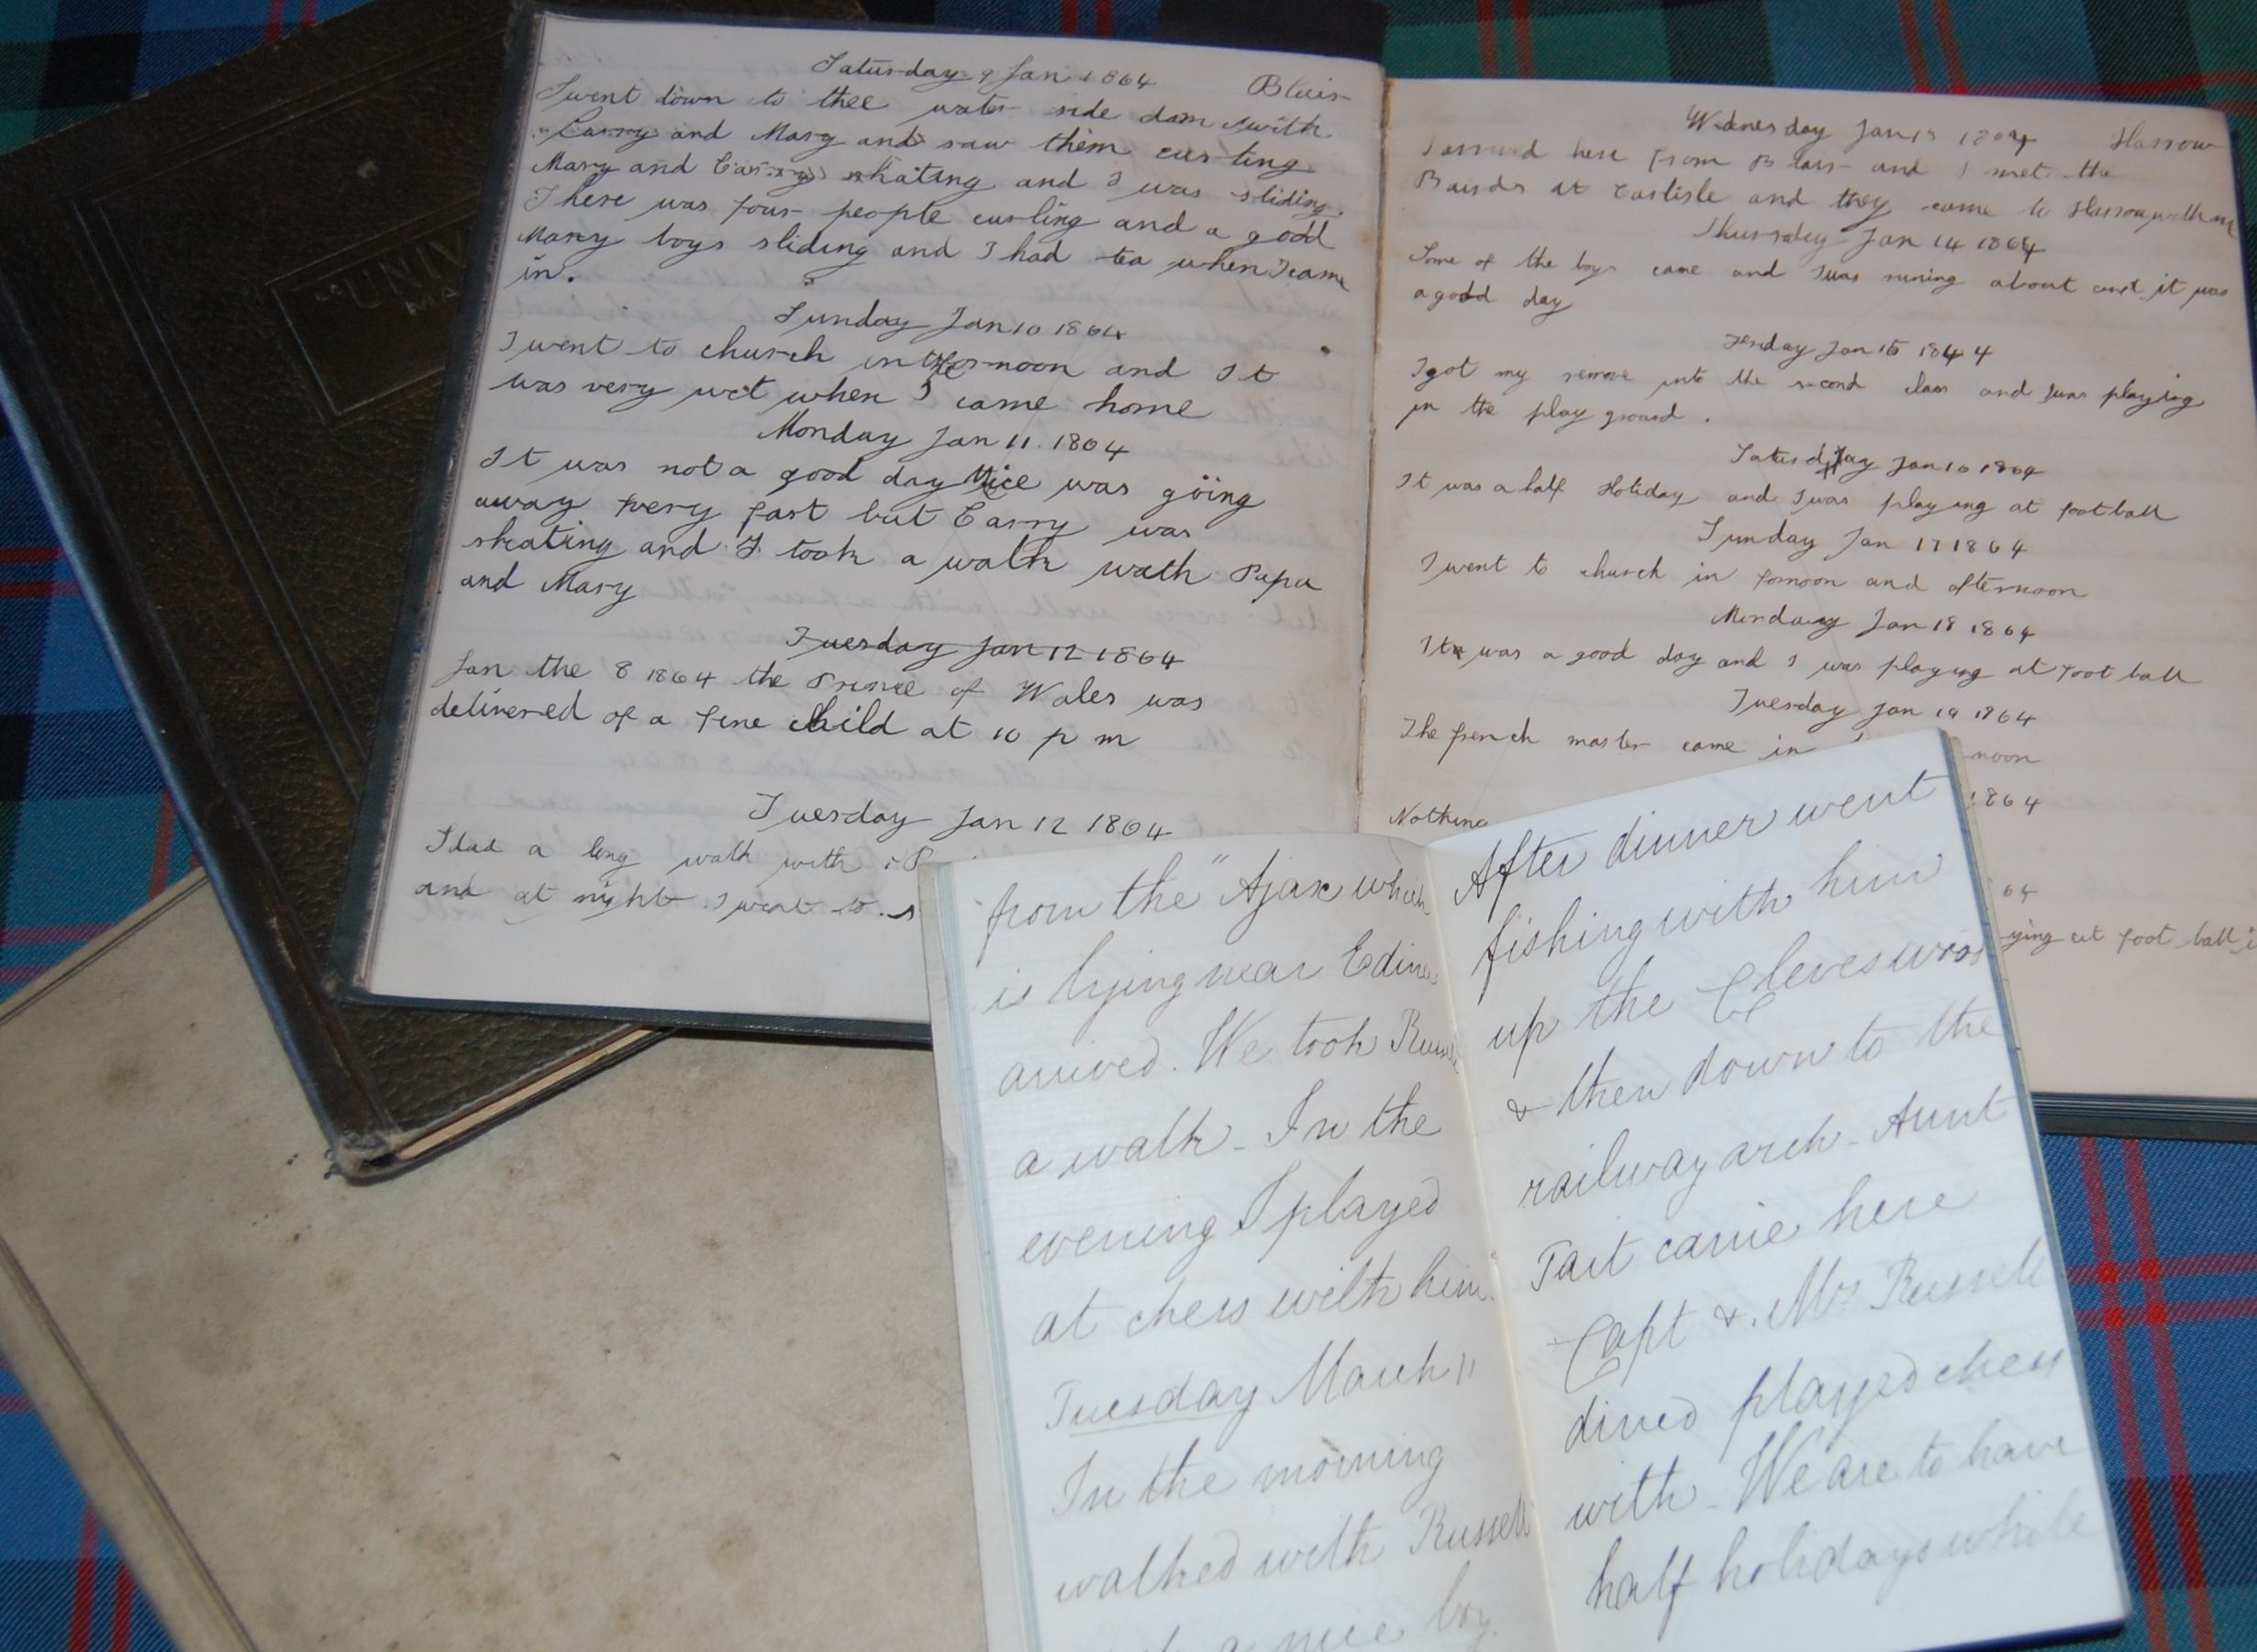 "UNIV
MA
Saturday 9 Jan 1864 Blair
I went down to thee water side dam with
Carry and Mary and saw them curling
Mary and Carry skating and I was sliding.
There was four people curling and a good
many boys sliding and I had tea when I came
in.
Sunday Jan 10 1864
I went to church in the fornoon and It
was very wet when I came home
Monday Jan 11. 1864
It was not a good day the ice was going
away very fast but Carry was
skating and I took a walk with Papa
and Mary
Tuesday Jan 12 1864
Jan the 8 1864 the Prince of Wales was
delivered of a fine child at 10 p m
Tuesday Jan 12 1864
I had a long walk with
and at night I went to
Wednesday Jan 13 1864 Harrow
I arrived here from Blair and I met the
Bairds at Carlisle and they came to Harrow with me
Thursday Jan 14 1864
Some of the boys came and I was runing about and it was
a good day
Friday Jan 15 1844
I got my remove into the second class and I was playing
in the play ground.
Saturday Jan 16 1864
It was a half Holiday and I was playing at foot ball
Sunday Jan 17 1864
I went to church in fornoon and afternoon
Monday Jan 18 1864
It was a good day and I was playing at foot ball
Tuesday Jan 19 1864
The french master came in noon
1864
Nothing
64
ying at foot ball
from the "Ajax which
is lying near Edin
arrived. We took Russ
a walk - In the
evening I played
at chess with him.
Tuesday March 11
In the morning
walked with Russell
a nice boy.
After dinner went
fishing with him
up the
& then down to the
railway arch - Aunt
Tait came here
Capt & Mrs Russell
dined played chess
with - We are to have
half holidays while